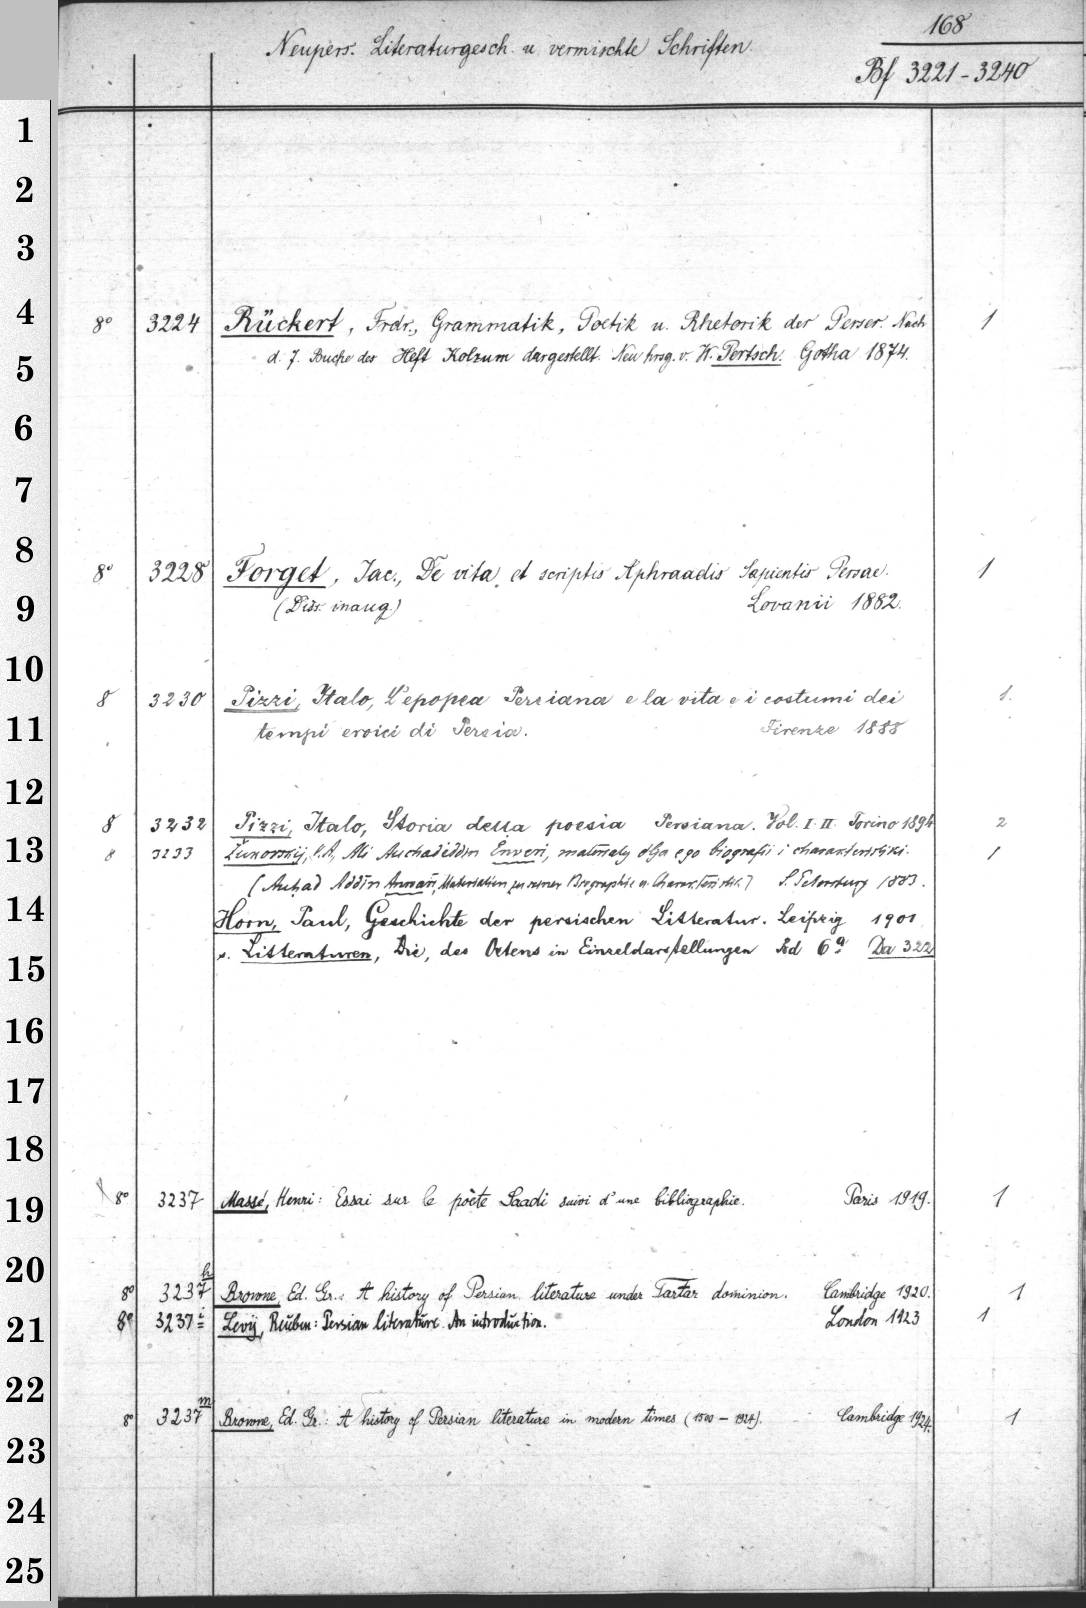 168
Neupers. Literaturgesch. u. vermischte Schriften.
Bf 3221-3240
1
2
3
4
8° 3224 Rückert, Frdr., Grammatik, Poetik u. Rhetorik der Perser. Nach 1
d. 7. Buche des Heft Kolzum dargestellt. Neu hrsg. v. W. Pertsch. Gotha 1874.
5
6
7
8
8° 3228 Forget, Jac., De vita et scriptis Aphraadis Sapientis Persae. 1
(Diss. inaug.) Lovanii 1882.
9
10
8 3230 Pizzi, Italo, L'epopea Persiana e la vita e i costumi dei 1.
11
tempi eroici di Persia. Firenze 1888
12
8 3232 Pizzi, Italo, Storia della poesia Persiana. Vol. I. II. Torino 1894 2
13
8 3233 Žukovskij, V. A., Ali Auchadeddin Enveri, materialy dlja ego biografii i charakteristiki. 1
(Auhad Addīn Anwarī, Materialien zu seiner Biographie u. Charakteristik.) S. Petersburg 1883.
14
Horn, Paul, Geschichte der persischen Litteratur. Leipzig 1901
s. Litteraturen, Die, des Ostens in Einzeldarstellungen Bd 6a Da 322
15
16
17
18
8° 3237 Massé, Henri: Essai sur le poète Saadi suivi d'une bibliographie. Paris 1919. 1
19
20
8° 3237h Browne, Ed. Gr.: A history of Persian literature under Tartar dominion. Cambridge 1920. 1
8° 3237i Levy, Reuben: Persian literature. An introduction. London 1923 1
21
22
8° 3237m Browne, Ed. Gr.: A history of Persian literature in modern times (1500-1924). Cambridge 1924. 1
23
24
25